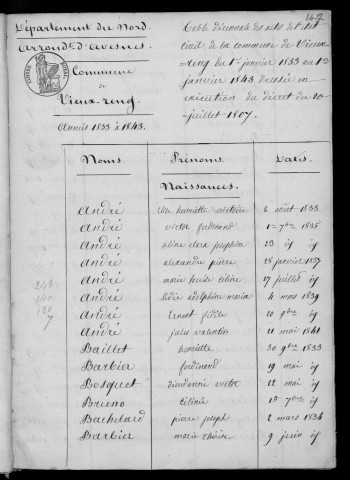 Département du Nord.
Arrond.t d'Avesnes.
Commune
de
Vieux-reng.
Années 1833 à 1843.
Table décennale des actes de l'état
civil de la commune de Vieux-
reng du 1er janvier 1833 au 1er
janvier 1843 dressée en
exécution du décret du 20
juillet 1807.
Noms Prénoms Dates
Naissances.
André henriette victoire 2 août 1833
André victor ferdinand 1er 7bre 1835
André aline clara josephine 23 id id
André alexandre pierre 28 janvier 1837
André marie louise céline 27 juillet id
André adelphine maria 4 mars 1839
André Ernest fidèle 20 9bre id
André jules valentin 21 mai 1841
Baillet henriette 30 9bre 1833
Barbier ferdinand 19 mai id
Bosquet dieudonné victor 22 mai id
Bruno célinie 15 7bre id
Bachelard pierre joseph 2 mars 1834
Barbier marie thérèse 9 juin id